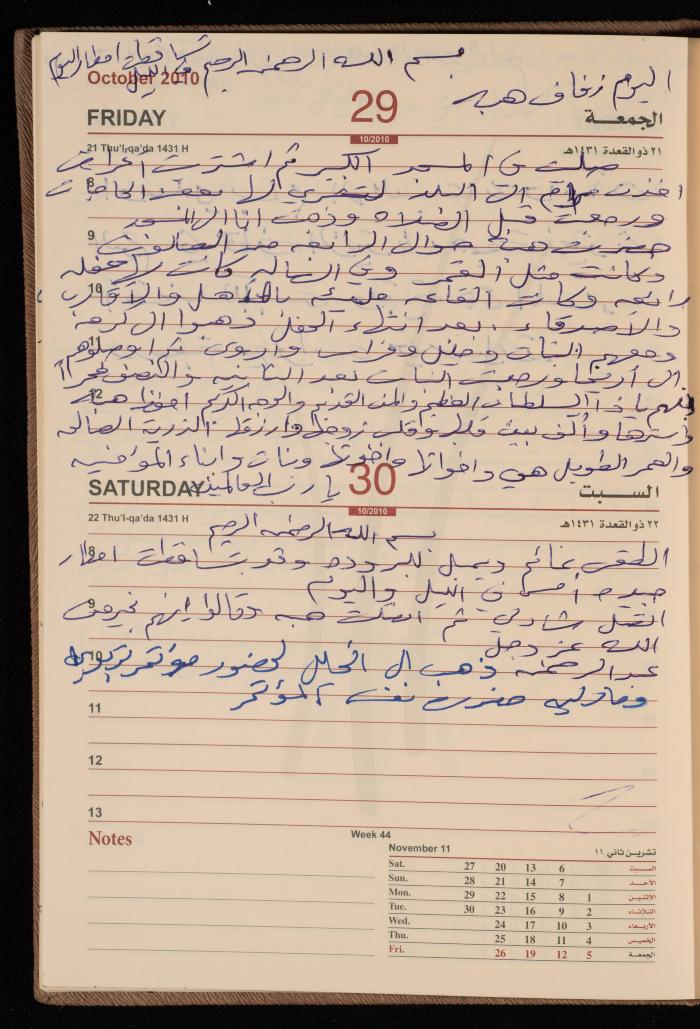 بسم الله الرحمن الرحيم تساقطت امطار اليوم
October 2010
اليوم زفاف هبه
FRIDAY 29 الجمعة
10/2010
21 Thu'l-qa'da 1431 H ٢١ ذو القعدة ١٤٣١هـ
صليت في المسجد الكبير ثم اشترت اغراض
8
اخذت الى البلد لتشتري لها بعض الحاجات
ورجعت قبل الصلاة وذهبت انا الى المسجد
9
حضرت هبة حوالي الرابعه من الصالون
وكانت مثل القمر وفي الصاله كانت الحفله
10
رائعه وكانت القاعه مليئه بالاهل والأقارب
والأصدقاء، بعد انتهاء الحفل ذهبوا الى
11
ومعهم البنات و وفراس واروى ثم اوصلوهم
الى أريحا ورجعت البنات بعد الثانيه والنصف فجراً
12
اللهم يا ذا السلطان العظيم والمن القديم والوجه الكريم احفظ هبه
وأسترها وألف بين قلبها وقلب زوجها وارزقها الذرية الصالحه
والعمر الطويل هي واخواتها واخوانها وبنات وابناء المؤمنين
يا رب العالمين
SATURDAY 30 السبت
10/2010
22 Thu'l-qa'da 1431 H ٢٢ ذو القعدة ١٤٣١هـ
بسم الله الرحمن الرحيم
8
الطقس غائم ويميل للبروده وقد تساقطت امطار
جيده أمس في الليل واليوم
9
اتصل شادي ثم اتصلت هبه وقالوا انهم بخير من
الله عز وجل
10
عبد الرحمن ذهب الى الخليل لحضور مؤتمر
حضرت نفس المؤتمر
11
12
13
Notes
Week 44
November 11 تشرين ثاني ١١
Sat. 27 20 13 6 السبت
Sun. 28 21 14 7 الأحد
Mon. 29 22 15 8 1 الاثنين
Tue. 30 23 16 9 2 الثلاثاء
Wed. 24 17 10 3 الأربعاء
Thu. 25 18 11 4 الخميس
Fri. 26 19 12 5 الجمعة